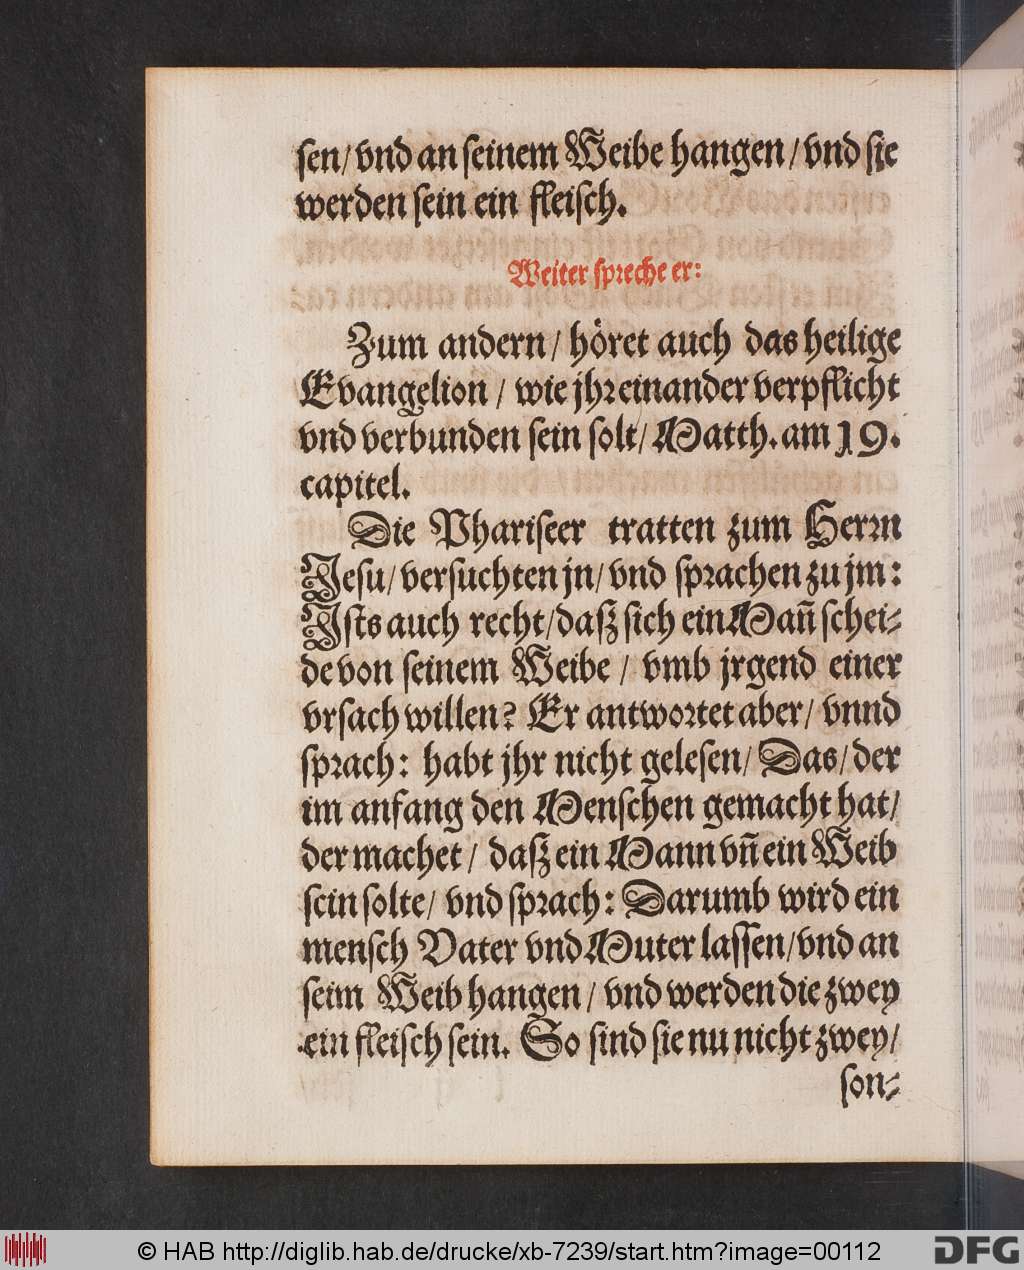 sen/ vnd an seinem Weibe hangen / vnd sie
werden sein ein fleisch.
Weiter spreche er:
Zum andern/ höret auch das heilige
Evangelion / wie jhr einander verpflicht
vnd verbunden sein solt/ Matth. am 19.
capitel.
Die Phariseer tratten zum Herrn
Jesu/ versuchten jn/ vnd sprachen zu jm:
Ists auch recht/ daß sich ein Man̄ schei-
de von seinem Weibe / vmb jrgend einer
vrsach willen? Er antwortet aber/ vnnd
sprach: habt jhr nicht gelesen/ Das/ der
im anfang den Menschen gemacht hat/
der machet / daß ein Mann vn̄ ein Weib
sein solte/ vnd sprach: Darumb wird ein
mensch Vater vnd Muter lassen/ vnd an
seim Weib hangen / vnd werden die zwey
ein fleisch sein. So sind sie nu nicht zwey/
son-
© HAB http://diglib.hab.de/drucke/xb-7239/start.htm?image=00112
DFG